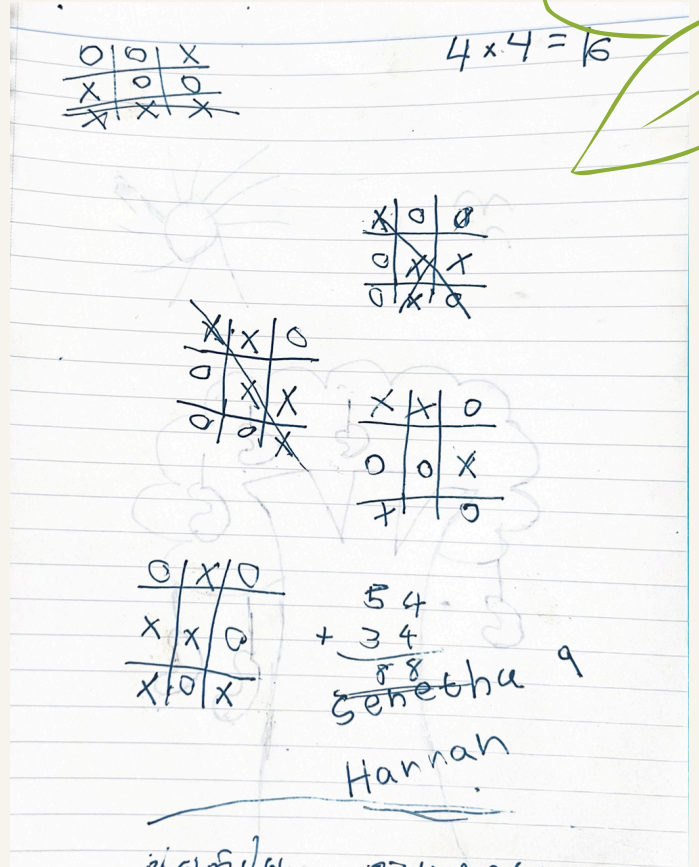 O O X
4 x 4 = 16
X O O
X X X
X O O
O X X
O X O
X X O
O X X
O O X
X X O
O O X
X O
O X O
X X O
X O X
54
+ 34
88
Senetha 9
Hannah